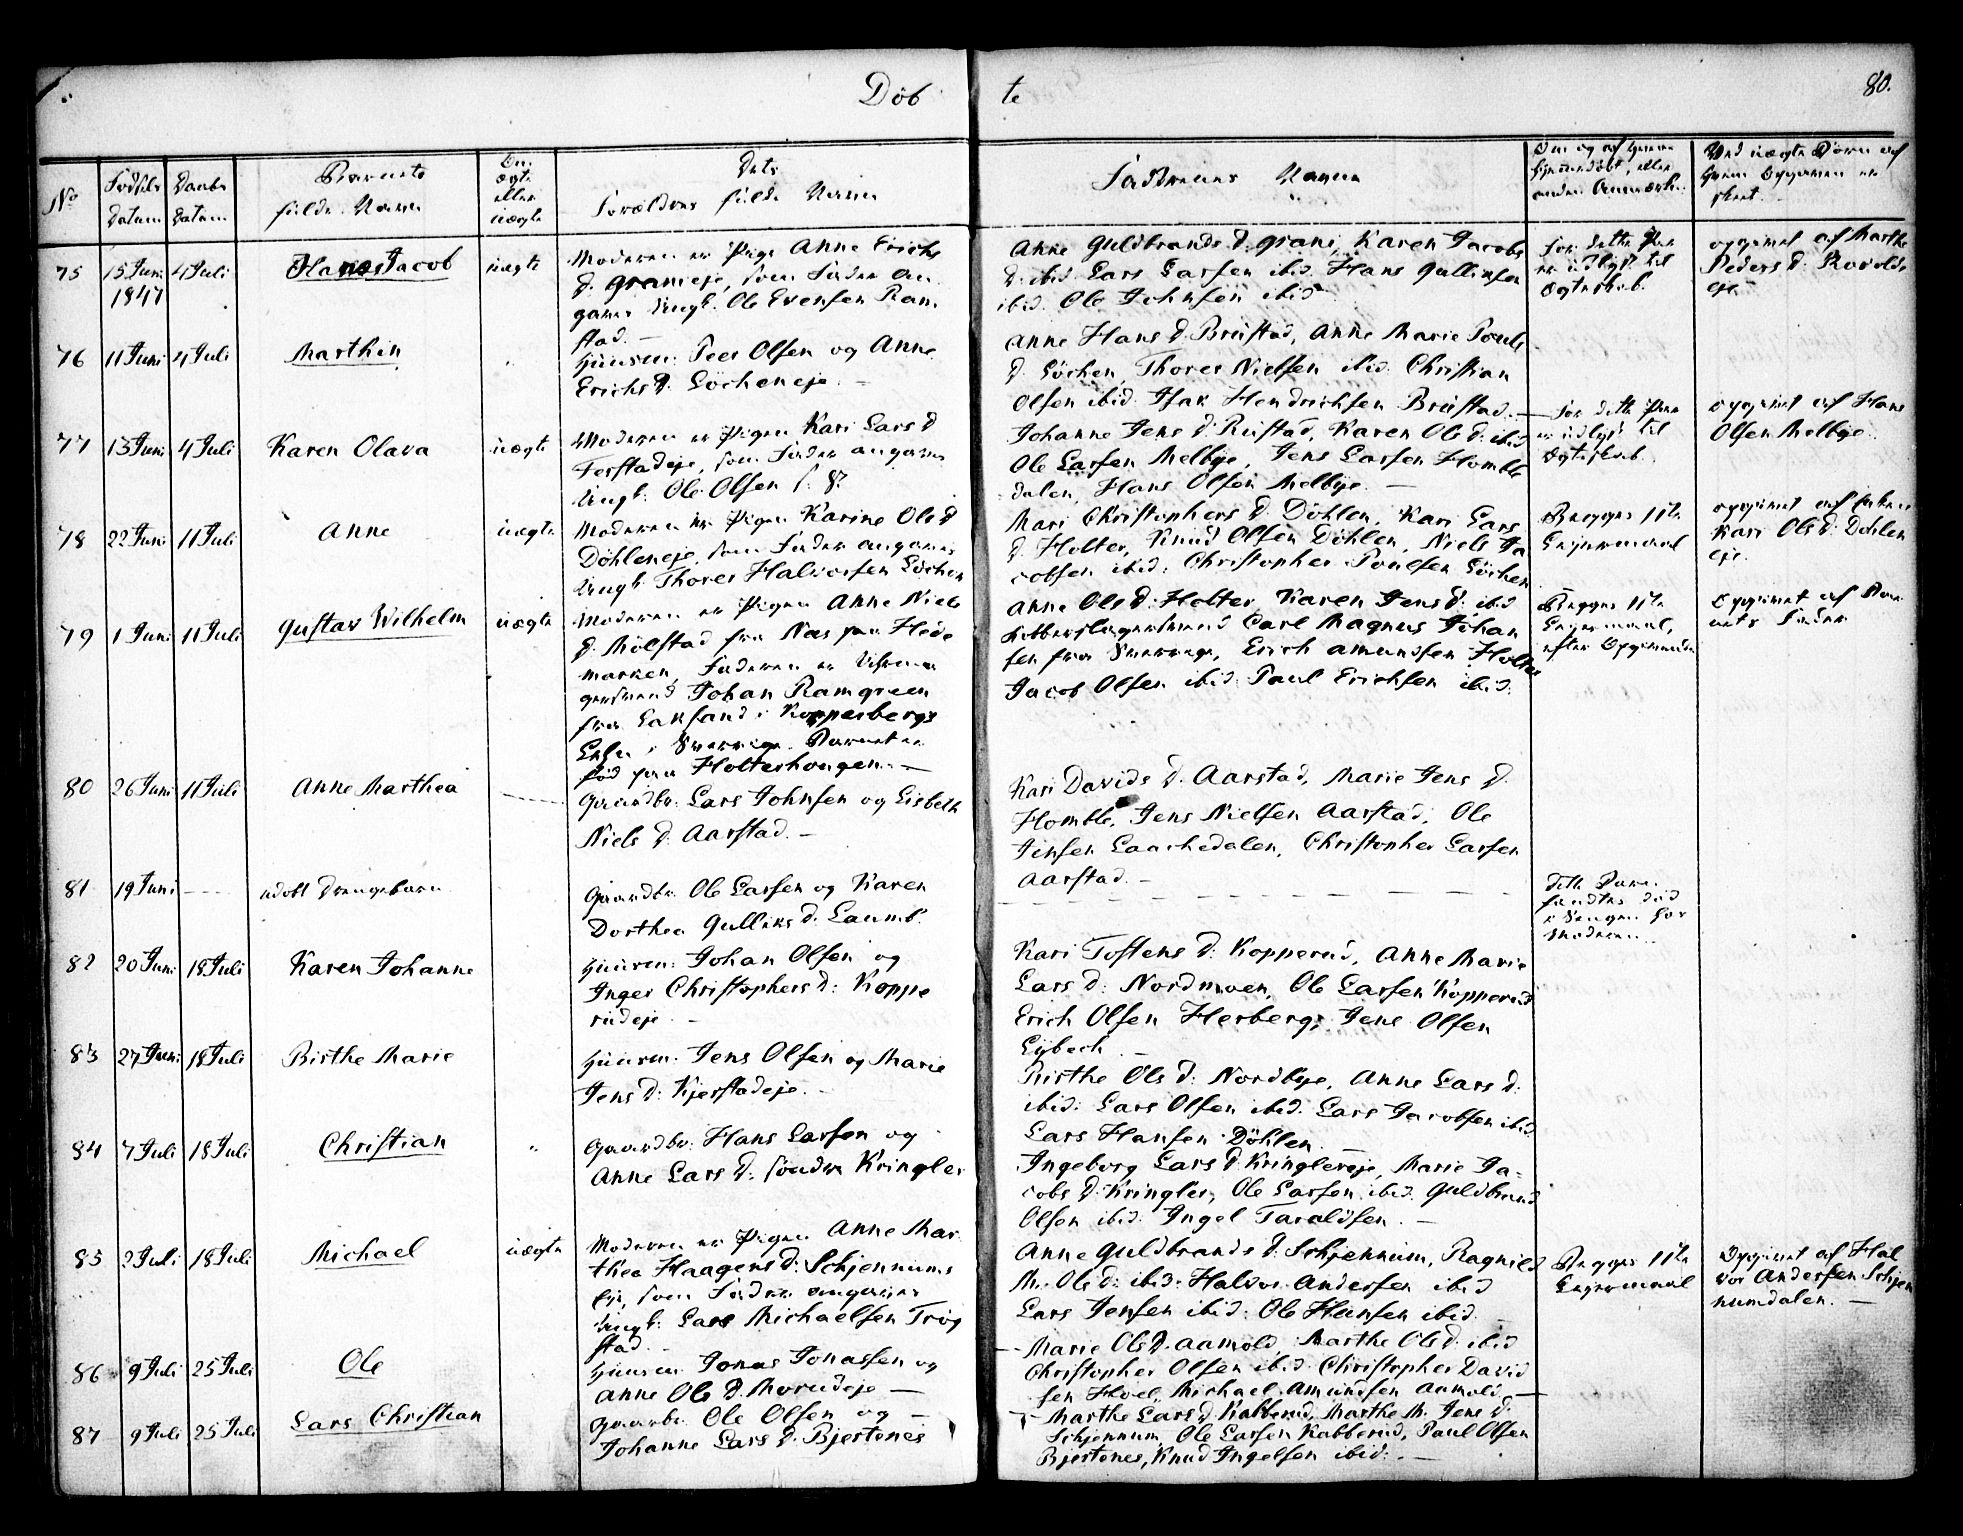 Döb te 80.
No
Födsels Datum
Daabs Datum
Barnets fulde Navn
Om ægte eller uægte
Dets Forældres fulde Navn
Faddernes Navne
Om og af hvem hjemmedöbt, eller anden Anmærkn.
Ved uægte Börn af hvem Opgaven er skeet.
75 15 Juni 1847 4 Juli Hans Jacob uægte
Moderen er Pige Anne Erichs
D. Graneeje, som Fader an
gaves Ungk. Ole Evensen Ram
stad. —
Anne Guldbrands D. Grani, Karen Jacobs
D. ibid. Lars Larsen ibid. Hans Gulliksen
ibid. Ole Johnsen ibid.
for dette Par
er udlyst til
Ægteskab.
opgivet af Marthe
Peders D. Rovolds
eje
76 11 Juni 4 Juli Marthin
Huusm: Peer Olsen og Anne
Erichs D. Löcheneje. —
Anne Hans D. Brustad, Anne Marie Pouls
D. Löchen, Thores Nielsen ibid. Christian
Olsen ibid. Isak Hendrichsen Brustad. —
77 13 Juni 4 Juli Karen Olava uægte
Moderen er Pigen Kari Lars D
Ferstadeje, som Fader angaves
Ungk. Ole Olsen s. S.
Johanne Jens D. Rustad, Karen Ols D. ibid
Ole Larsen Melbye, Jens Larsen Homble
dalen, Hans Olsen Melbye. —
for dette Par
er udlyst til
Ægteskab.
opgivet af Hans
Olsen Melbye.
78 22 Juni 11 Juli Anne uægte
Moderen er Pigen Karine Ols D
Döhleneje, som Fader angaves
Ungk Thores Halvorsen Löchen
Mari Christophers D. Döhlen, Kari Lars
D. Holter, Knud Olsen Döhlen, Niels Ja
cobsen ibid. Christopher Poulsen Löchen
Begges 1ste
Leiermaal
opgivet af Enken
Kari Ols D. Döhlen
eje.
79 1 Juni 11 Juli Gustav Wilhelm uægte
Moderen er Pigen Anne Niels
D. Mölstad fra Næs paa Hede
marken, Faderen er
gersvend Johan Ramgreen
fra Laksand i Kopperbergs
Lehn i Sverrige. Barnet er
föd paa Holterhougen. —
Anne Ols D. Holter, Karen Jens D. ibid
Kobberslagersvend Carl Magnus Johan
sen fra Sverrige, Erich Amundsen Holter
Jacob Olsen ibid. Paul Erichsen ibid.
Begges 1ste
Leiermaal,
efter Opgivende
Opgivet af Bar
nets Fader
80 26 Juni 11 Juli Anne Marthea
Gaardbr. Lars Johnsen og Lisbeth
Niels D. Aarstad. —
Kari Davids D. Aarstad, Marie Jens D.
Homble, Jens Nielsen Aarstad, Ole
Jensen Laachedalen, Christopher Larsen
Aarstad. —
81 19 Juni - - - udöbt Drengebarn
Gaardbr. Ole Larsen og Karen
Dorthea Gulliks D. Laumb.
dette Barn
fandtes död
i Sengen hos
Moderen.
82 20 Juni 18 Juli Karen Johanne
Huusm: Johan Olsen og
Inger Christophers D: Koppe
rudeje. —
Kari Tostens D: Kopperud, Anne Marie
Lars D: Nordmoen, Ole Larsen Kopperud
Erich Olsen Herberg, Jens Olsen
Lybech —
83 27 Juni 18 Juli Birthe Marie
Huusm: Jens Olsen og Marie
Jens D: Kjerstadeje. —
Birthe Ols D: Nordbye, Anne Lars D:
ibid: Lars Olsen ibid. Lars Jacobsen ibid.
Lars Hansen Döhlen.
84 7 Juli 18 Juli Christian
Gaardbr. Hans Larsen og
Anne Lars D: söndre Kringler
Ingeborg Lars D. Kringlereje, Marie Ja-
cobs D. Kringler, Ole Larsen ibid. Guldbrand
Olsen ibid. Ingel Taralsen. —
85 2 Juli 18 Juli Michael uægte
Moderen er Pigen Anne Mar
thea Haagens D: Schjennums
eje, som Fader angaves
Ungk: Lars Michaelsen Trög
stad.
Anne Guldbrands D. Schjennum, Ragnild
M. Ols D: ibid. Halvor Andersen ibid
Lars Jensen ibid. Ole Hansen ibid.
Begges 1ste
Leiermaal
Opgivet af Hal
vor Andersen Schjen
numdalen. —
86 9 Juli 25 Juli Ole
Huusm: Jonas Jonassen og
Anne Ols D. Morudeje —
Marie Ols D. Aamold, Marthe Ols D. ibid
Christopher Olsen ibid. Christopher David
sen Hoel, Michael Amundsen Aamold. —
87 9 Juli 25 Juli Lars Christian
Gaardbr. Ole Olsen og —
Johanne Lars D. Bjertenes
Marthe Lars D. Kabberud, Marthe M. Jens D.
Schjennum, Ole Larsen Kabberud, Paul Olsen
Bjertenes, Knud Ingelsen ibid. —